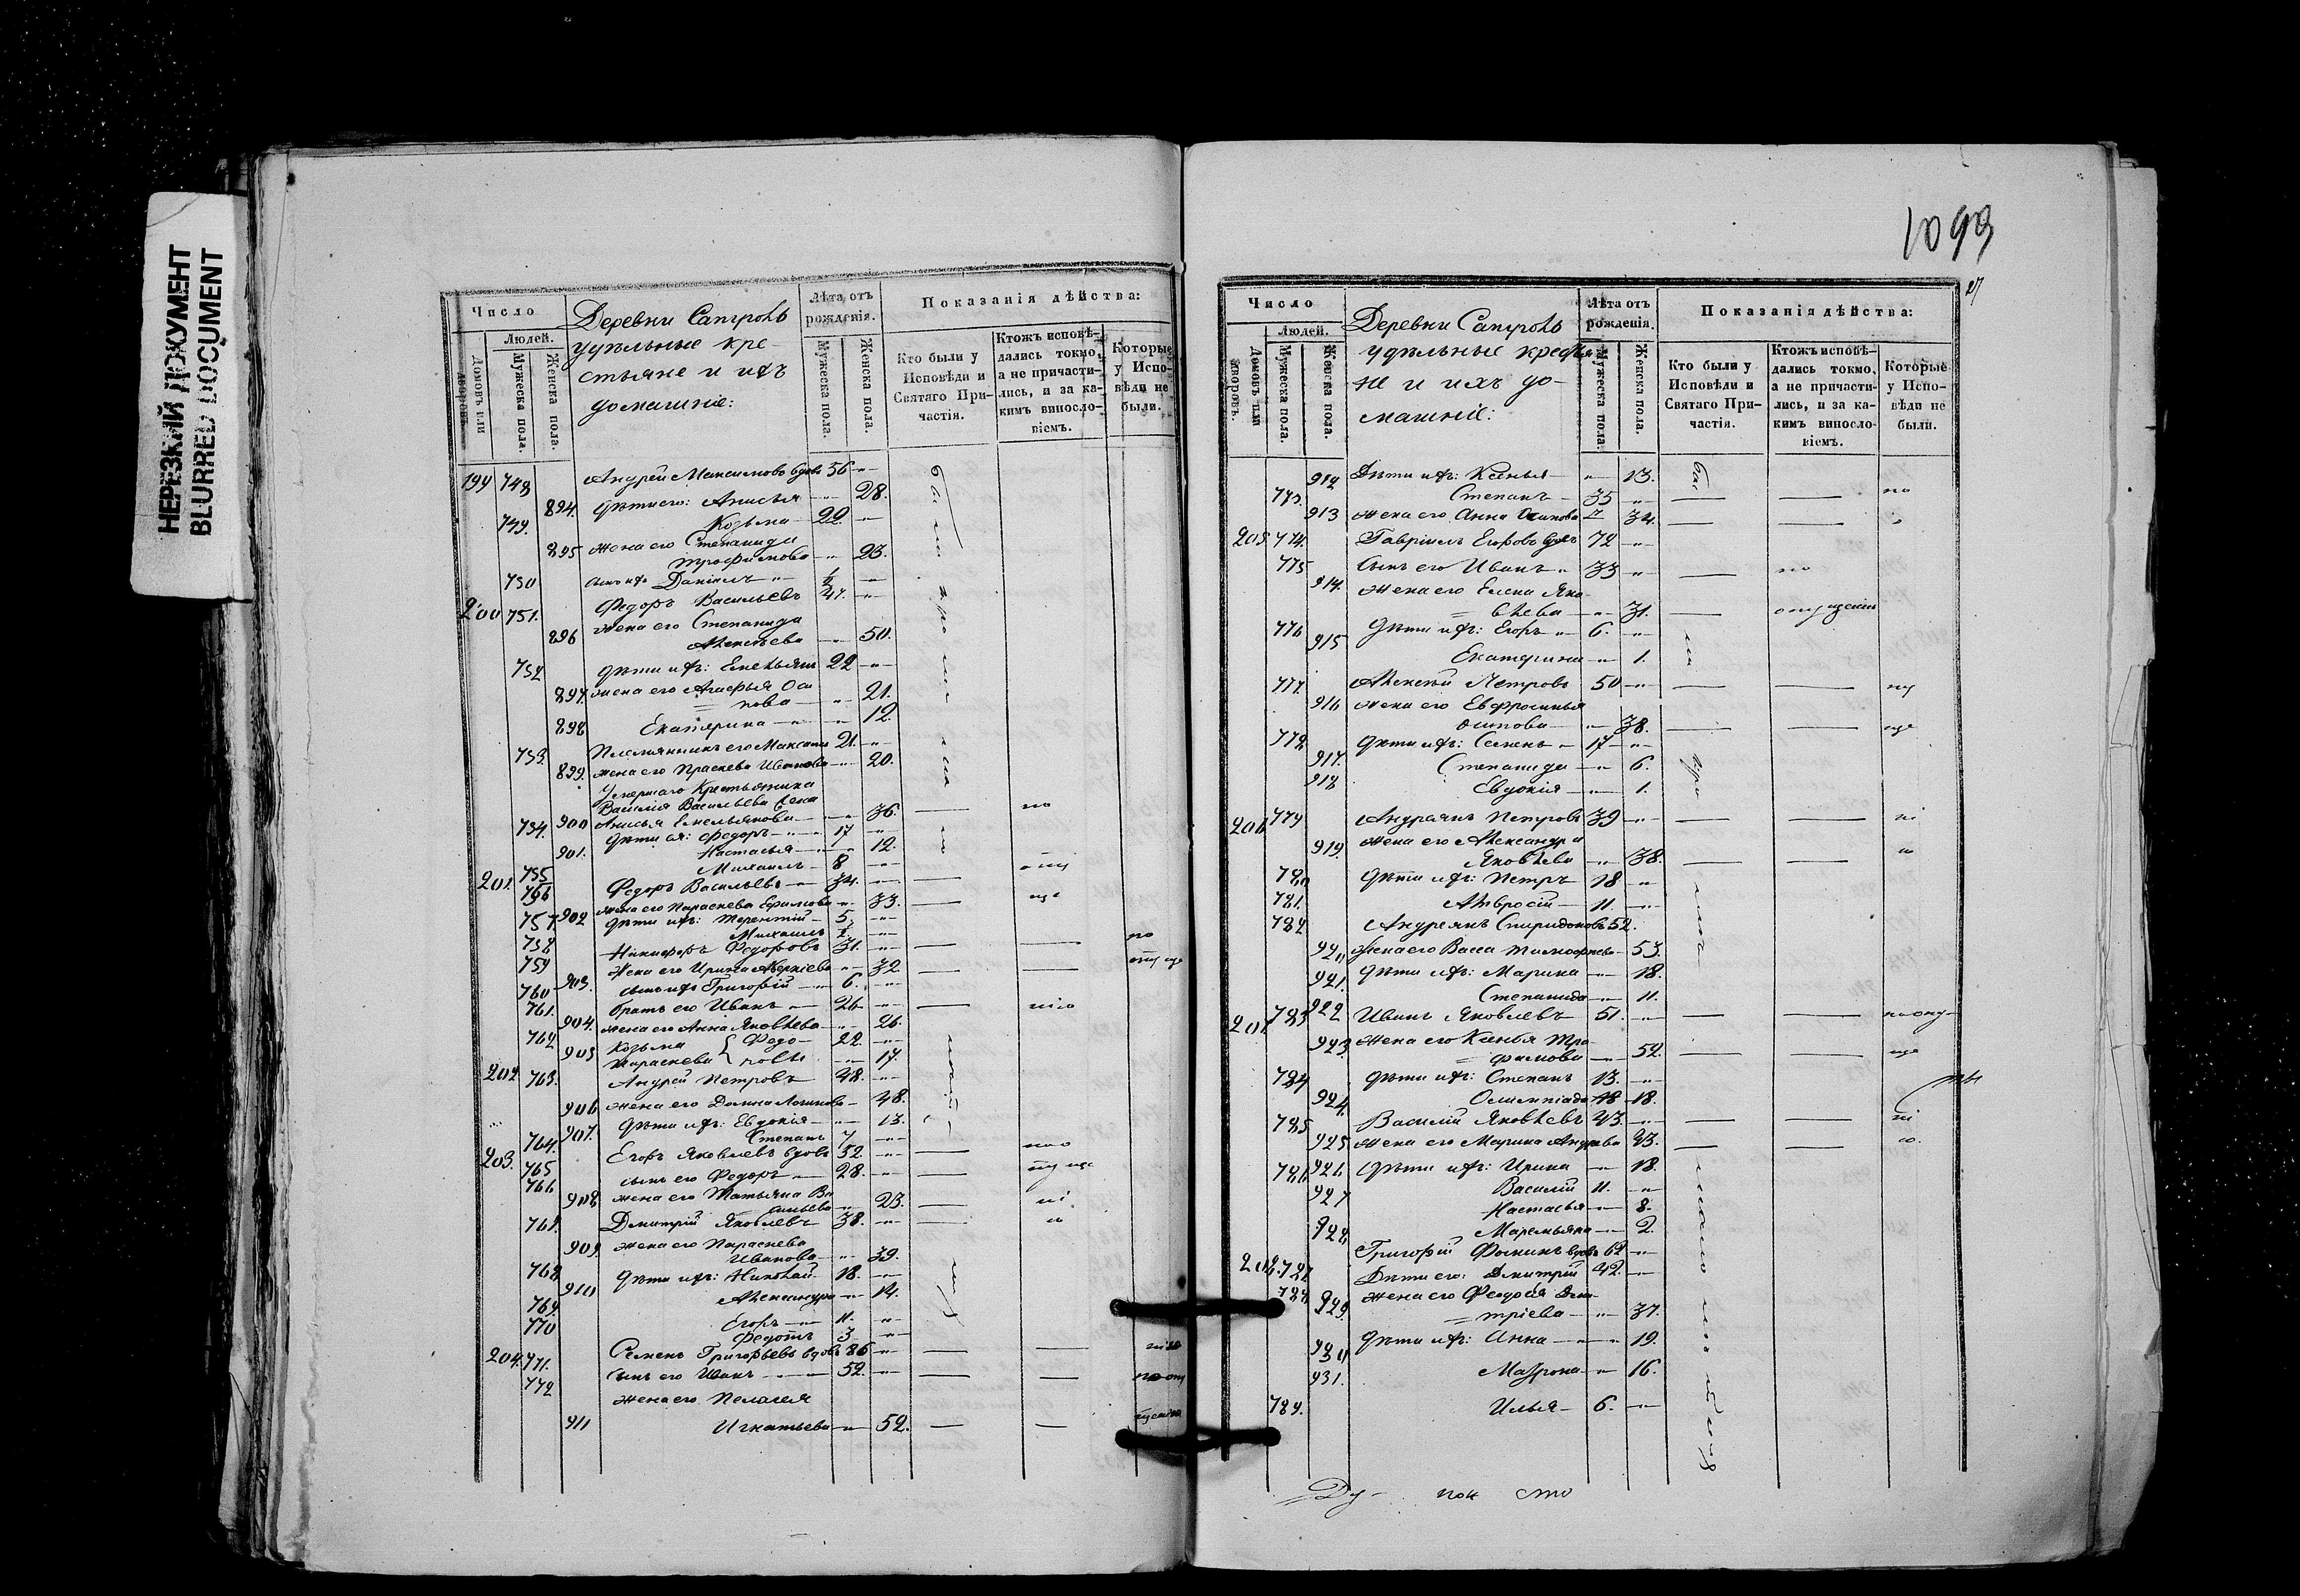 НЕРЕЗКИЙ ДОКУМЕНТ
BLURRED DOCUMENT
Число
Людей.
Домовъ или дворовъ.
Мужеска пола.
Женска пола.
Деревни
удѣльные кре-
стьяне и ихъ
домашніе:
Лѣта отъ рожденія.
Мужеска пола.
Женска пола.
Показанія дѣйства:
Кто были у Исповѣди и Святаго При-частія.
Ктожъ исповѣ-дались токмо, а не причасти-лись, и за ка-кимъ винословіемъ.
Которые у Испо-вѣди не были.
199 748 Андрей Максимовъ вдовъ 56
894. дѣти его: Анисья 28.
749. Козьма 22
895 жена его Степанида
Трофимова 23.
750 сынъ ихъ Даніилъ ½
200 751. Федоръ Васильевъ 47.
896 жена его Степанида
Алексѣева 50.
752 дѣти ихъ: Емельянъ 22
897. жена его Агафья Оси
пова 21.
898 Екатерина 12.
753. Племянникъ его Максимъ 21.
899. жена его Праскева Иванова 20.
Умершаго Крестьянина
Василія Васильева жена
900 Анисья Емельянова 36.
754. дѣти ея: Федоръ 17
901. Настасья 12.
755 Михаилъ 8
201. 756 Федоръ Васильевъ 34.
902 жена его Параскева Ефимова 33.
757 дѣти ихъ: Терентій 5.
758 Михаилъ ½
759 Никифоръ Федоровъ 31.
903. Жена его Ирина Аверкіева 32
760 сынъ ихъ Григорій 6.
761. братъ его Иванъ 26
904. жена его Анна Яковлева 26.
762 Козьма 22.
905 Параскева 17
202 763. Андрей Петровъ 48.
906 жена его Домна Логинова 48.
907. дѣти ихъ: Евдокія 13.
764. Степанъ 7.
203. 765 Егоръ Яковлевъ вдовъ 52.
766 сынъ его Федоръ 28.
908 жена его Татьяна Ва
сильева 23.
767. Дмитрій Яковлевъ 38.
909 жена его Параскева
Иванова 39.
768 дѣти ихъ: Николай 18.
910 Александра 14.
769. Егоръ 11.
770 Федотъ 3
204. 771. Семенъ Григорьевъ вдовъ 86
772 сынъ его Иванъ 52.
жена его Пелагея
911 Игнатьева 52.
1099
Число
Людей.
Домовъ или дворовъ.
Мужеска пола.
Женска пола.
Деревни
удѣльные крестья
не и ихъ до-
машніе:
Лѣта отъ рожденія.
Мужеска пола.
Женска пола.
Показанія дѣйства:
Кто были у Исповѣди и Святаго При-частія.
Ктожъ исповѣ-дались токмо, а не причасти-лись, и за ка-кимъ винословіемъ.
Которые у Испо-вѣди не были.
912 Дѣти ихъ: Ксенья 13.
773. Степанъ 35
913 жена его Анна Осипова 34.
205 774. Гавріилъ Егоровъ вдовъ 72
775 Сынъ его Иванъ 33
914. жена его Елена Яко
влева 31.
776 дѣти ихъ: Егоръ 6.
915 Екатерина 1.
777. Алексѣй Петровъ 50
916 жена его Евфросинья
Осипова 38.
778 дѣти ихъ: Семенъ 17
917. Степанида 6.
918 Евдокія 1.
206 779 Андреянъ Петровъ 39
919. жена его Александра
Яковлева 38.
780 дѣти ихъ: Петръ 18
781. Амвросій 11.
782 Андреянъ Спиридоновъ 52.
920 жена его Васса Тимофеева 53.
921. дѣти ихъ: Марина 18.
922 Степанида 11.
207 783 Иванъ Яковлевъ 51.
923. жена его Ксенья Тро
фимова 52.
784 дѣти ихъ: Степанъ 13.
924. Олимпіада 18.
785 Василій Яковлевъ 43.
925 жена его Марина Андреева 43.
926 дѣти ихъ: Ирина 18.
786 Василій 11.
927 Настасья 8.
928 Маремьяна 2.
208. 787 Григорій Фоминъ вдовъ 62
788 Дѣти его: Дмитрій 42.
929. жена его Федосья Дми
тріева 37.
930 дѣти ихъ: Анна 19.
931. Матрона 16.
789. Илья 6.